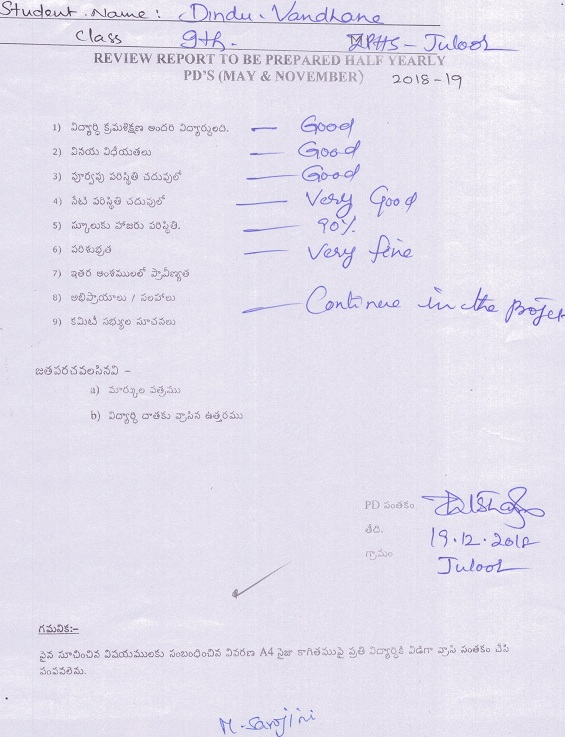 Student Name : Dindu. Vandhane
Class 9th. ZPHS - Juloor
REVIEW REPORT TO BE PREPARED HALF YEARLY
PD'S (MAY & NOVEMBER) 2018-19
1) విద్యార్థి క్రమశిక్షణ అందరి విద్యార్థులది. — Good
2) వినయ విధేయతలు — Good
3) పూర్వపు పరిస్థితి చదువులో — Good
4) నేటి పరిస్థితి చదువులో — Very Good
5) స్కూలుకు హాజరు పరిస్థితి. — 90%
6) పరిశుభ్రత — Very fine
7) ఇతర అంశములలో ప్రావీణ్యత
8) అభిప్రాయాలు / సలహాలు — Continue in the projet
9) కమిటీ సభ్యుల సూచనలు
జతపరచవలసినవి –
a) మార్కుల పత్రము
b) విద్యార్థి దాతకు వ్రాసిన ఉత్తరము
PD సంతకం
తేది. 19.12.2018
గ్రామం Juloor
గమనిక:-
పైన సూచించిన విషయములకు సంబంధించిన వివరణ A4 సైజు కాగితముపై ప్రతి విద్యార్థికి విడిగా వ్రాసి సంతకం చేసి
పంపవలెను.
M. Sarojini